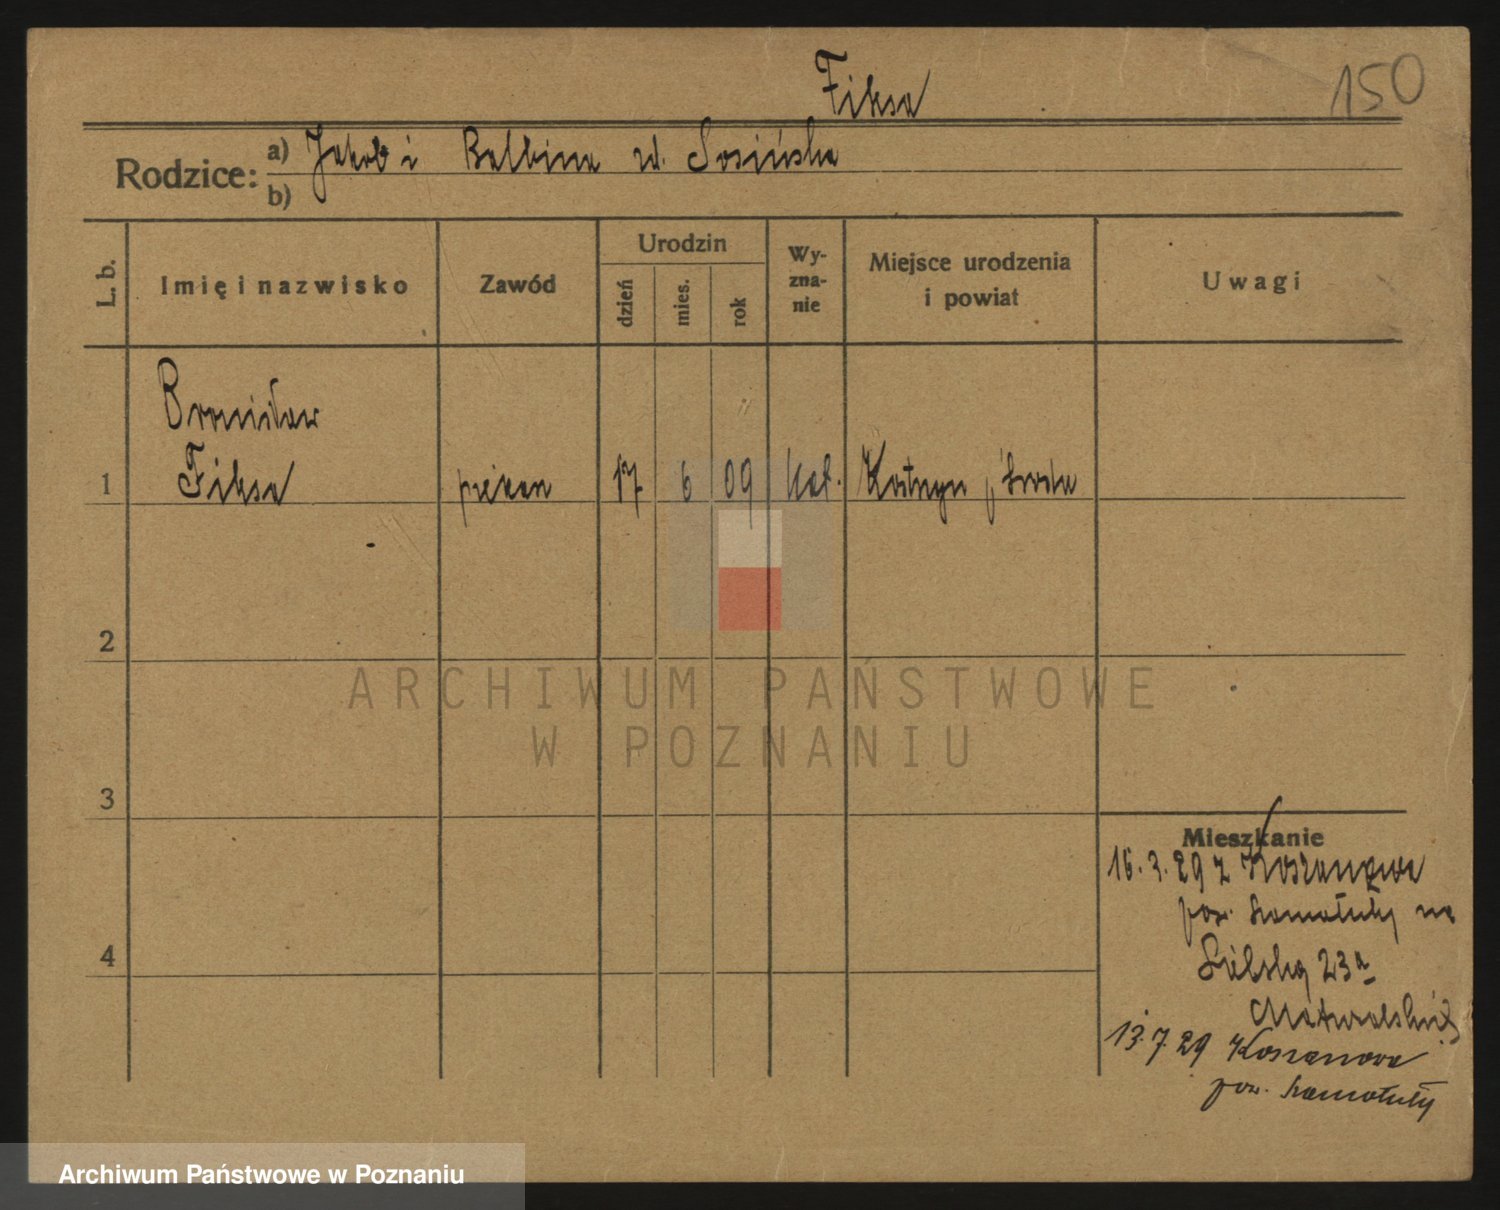 Fiksa
150
Rodzice: a) Jakob i Balbina zd. Sosińska
b)
L. b.
Imię i nazwisko
Zawód
Urodzin
dzień
mies.
rok
Wy-
zna-
nie
Miejsce urodzenia
i powiat
Uwagi
Bronisław
1 Fiksa piekarz 17 6 09 kat. Kostrzyn p. Środa
2
ARCHIWUM PAŃSTWOWE
W POZNANIU
3
4
Mieszkanie
16. 3. 29 z Koszanowa
pow. Szamotuły na
23a
13. 7. 29 Koszanowo
pow. Szamotuły
Archiwum Państwowe w Poznaniu